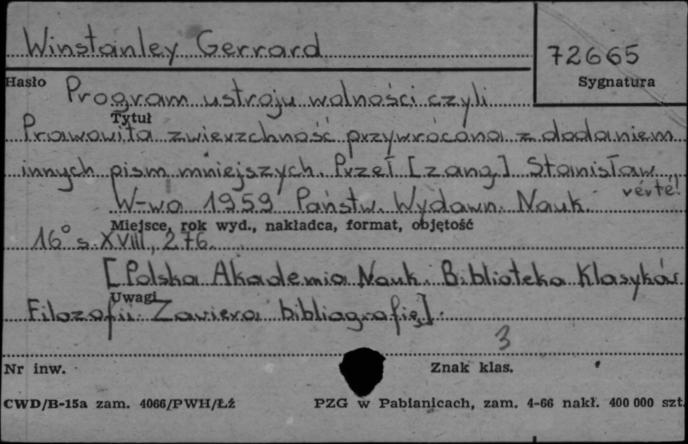 Winstanley Gerrard
72665
Hasło
Sygnatura
Program ustroju wolności czyli
Tytuł
Prawowita zwierzchność przywrócona z dodaniem
innych pism mniejszych. Przeł [z ang.] Stanisław
verte!
W-wa 1959 Państw. Wydawn. Nauk.
Miejsce, rok wyd., nakładca, format, objętość
16° s. XVIII, 276.
[Polska Akademia Nauk. Biblioteka Klasyków
Uwagi
Filozofii. Zawiera bibliografię].
3
Nr inw.
Znak klas.
CWD/B-15a zam. 4066/PWH/Łź
PZG w Pabianicach, zam. 4-66 nakł. 400 000 szt.